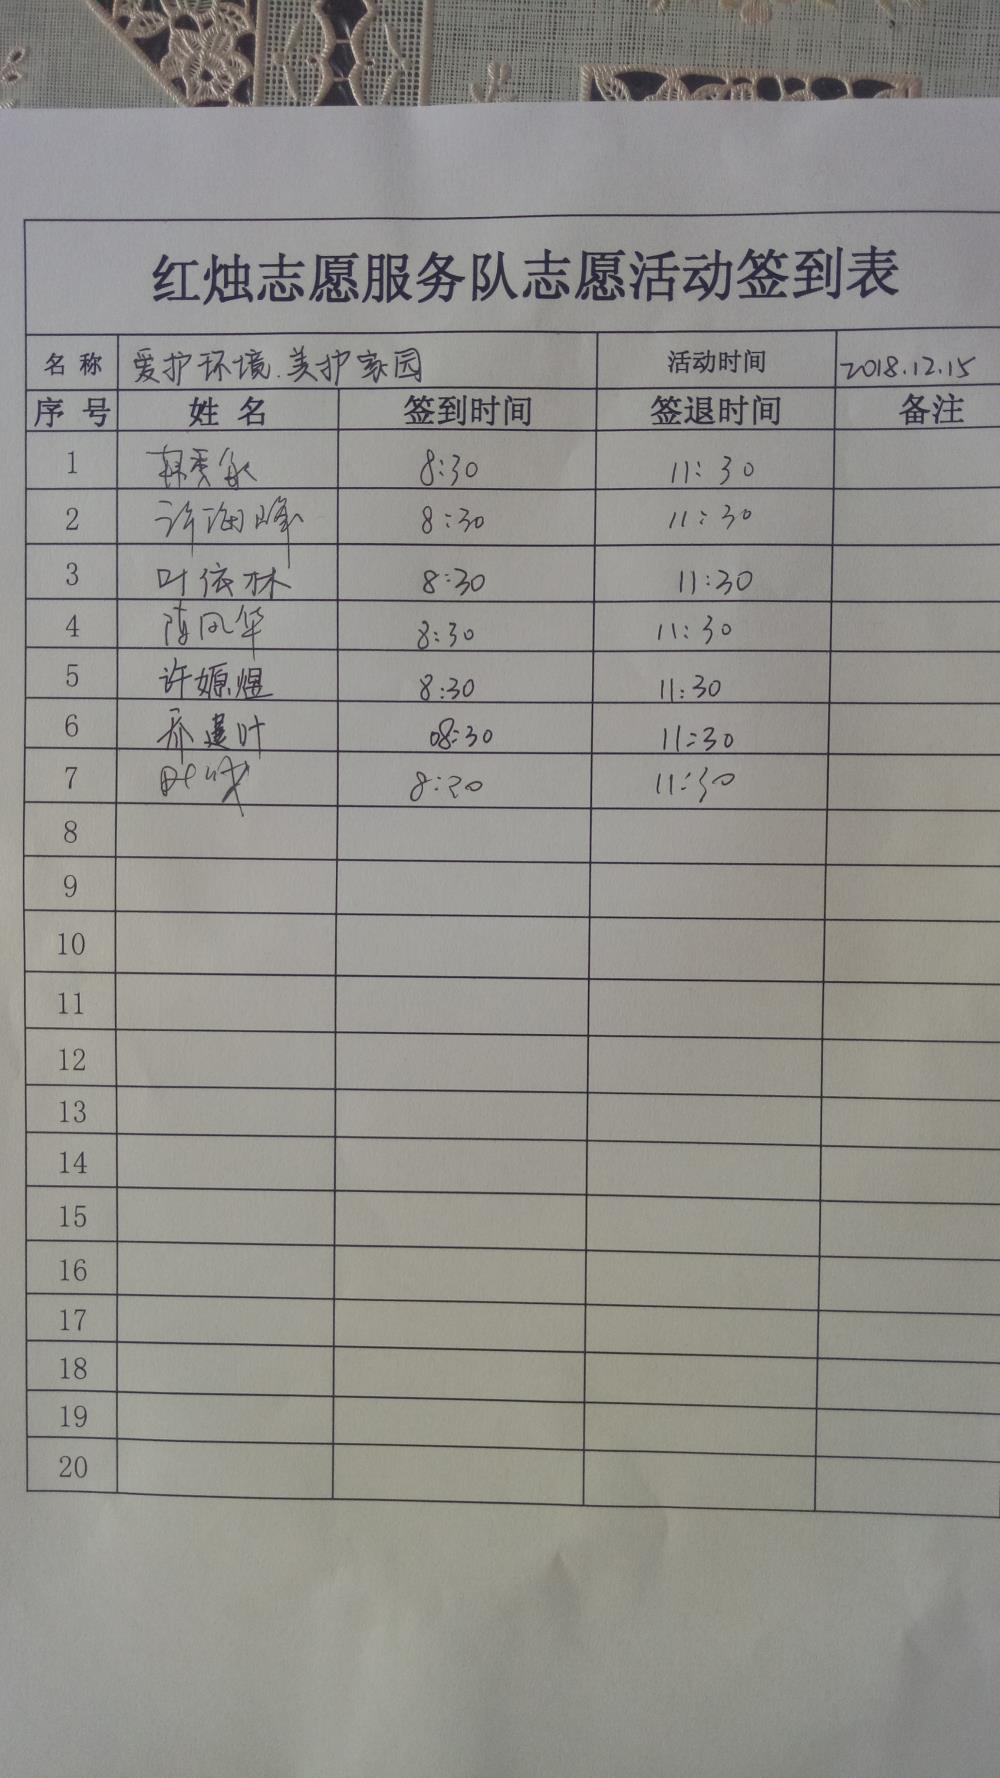 红烛志愿服务队志愿活动签到表
名称 爱护环境.美护家园 活动时间 2018.12.15
序号 姓名 签到时间 签退时间 备注
1 韩秀敏 8:30 11:30
2 许海峰 8:30 11:30
3 叶依林 8:30 11:30
4 陈凤华 8:30 11:30
5 许嫄煜 8:30 11:30
6 乔建叶 08:30 11:30
7 8:30 11:30
8
9
10
11
12
13
14
15
16
17
18
19
20